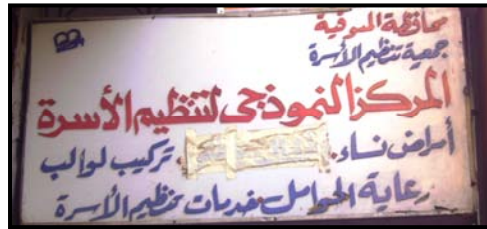 محافظة المنوفية
جمعية تنظيم الأسرة
المركز النموذجى لتنظيم الأسرة
أمراض نساء. تركيب لوالب
رعاية الحوامل خدمات تنظيم الأسرة